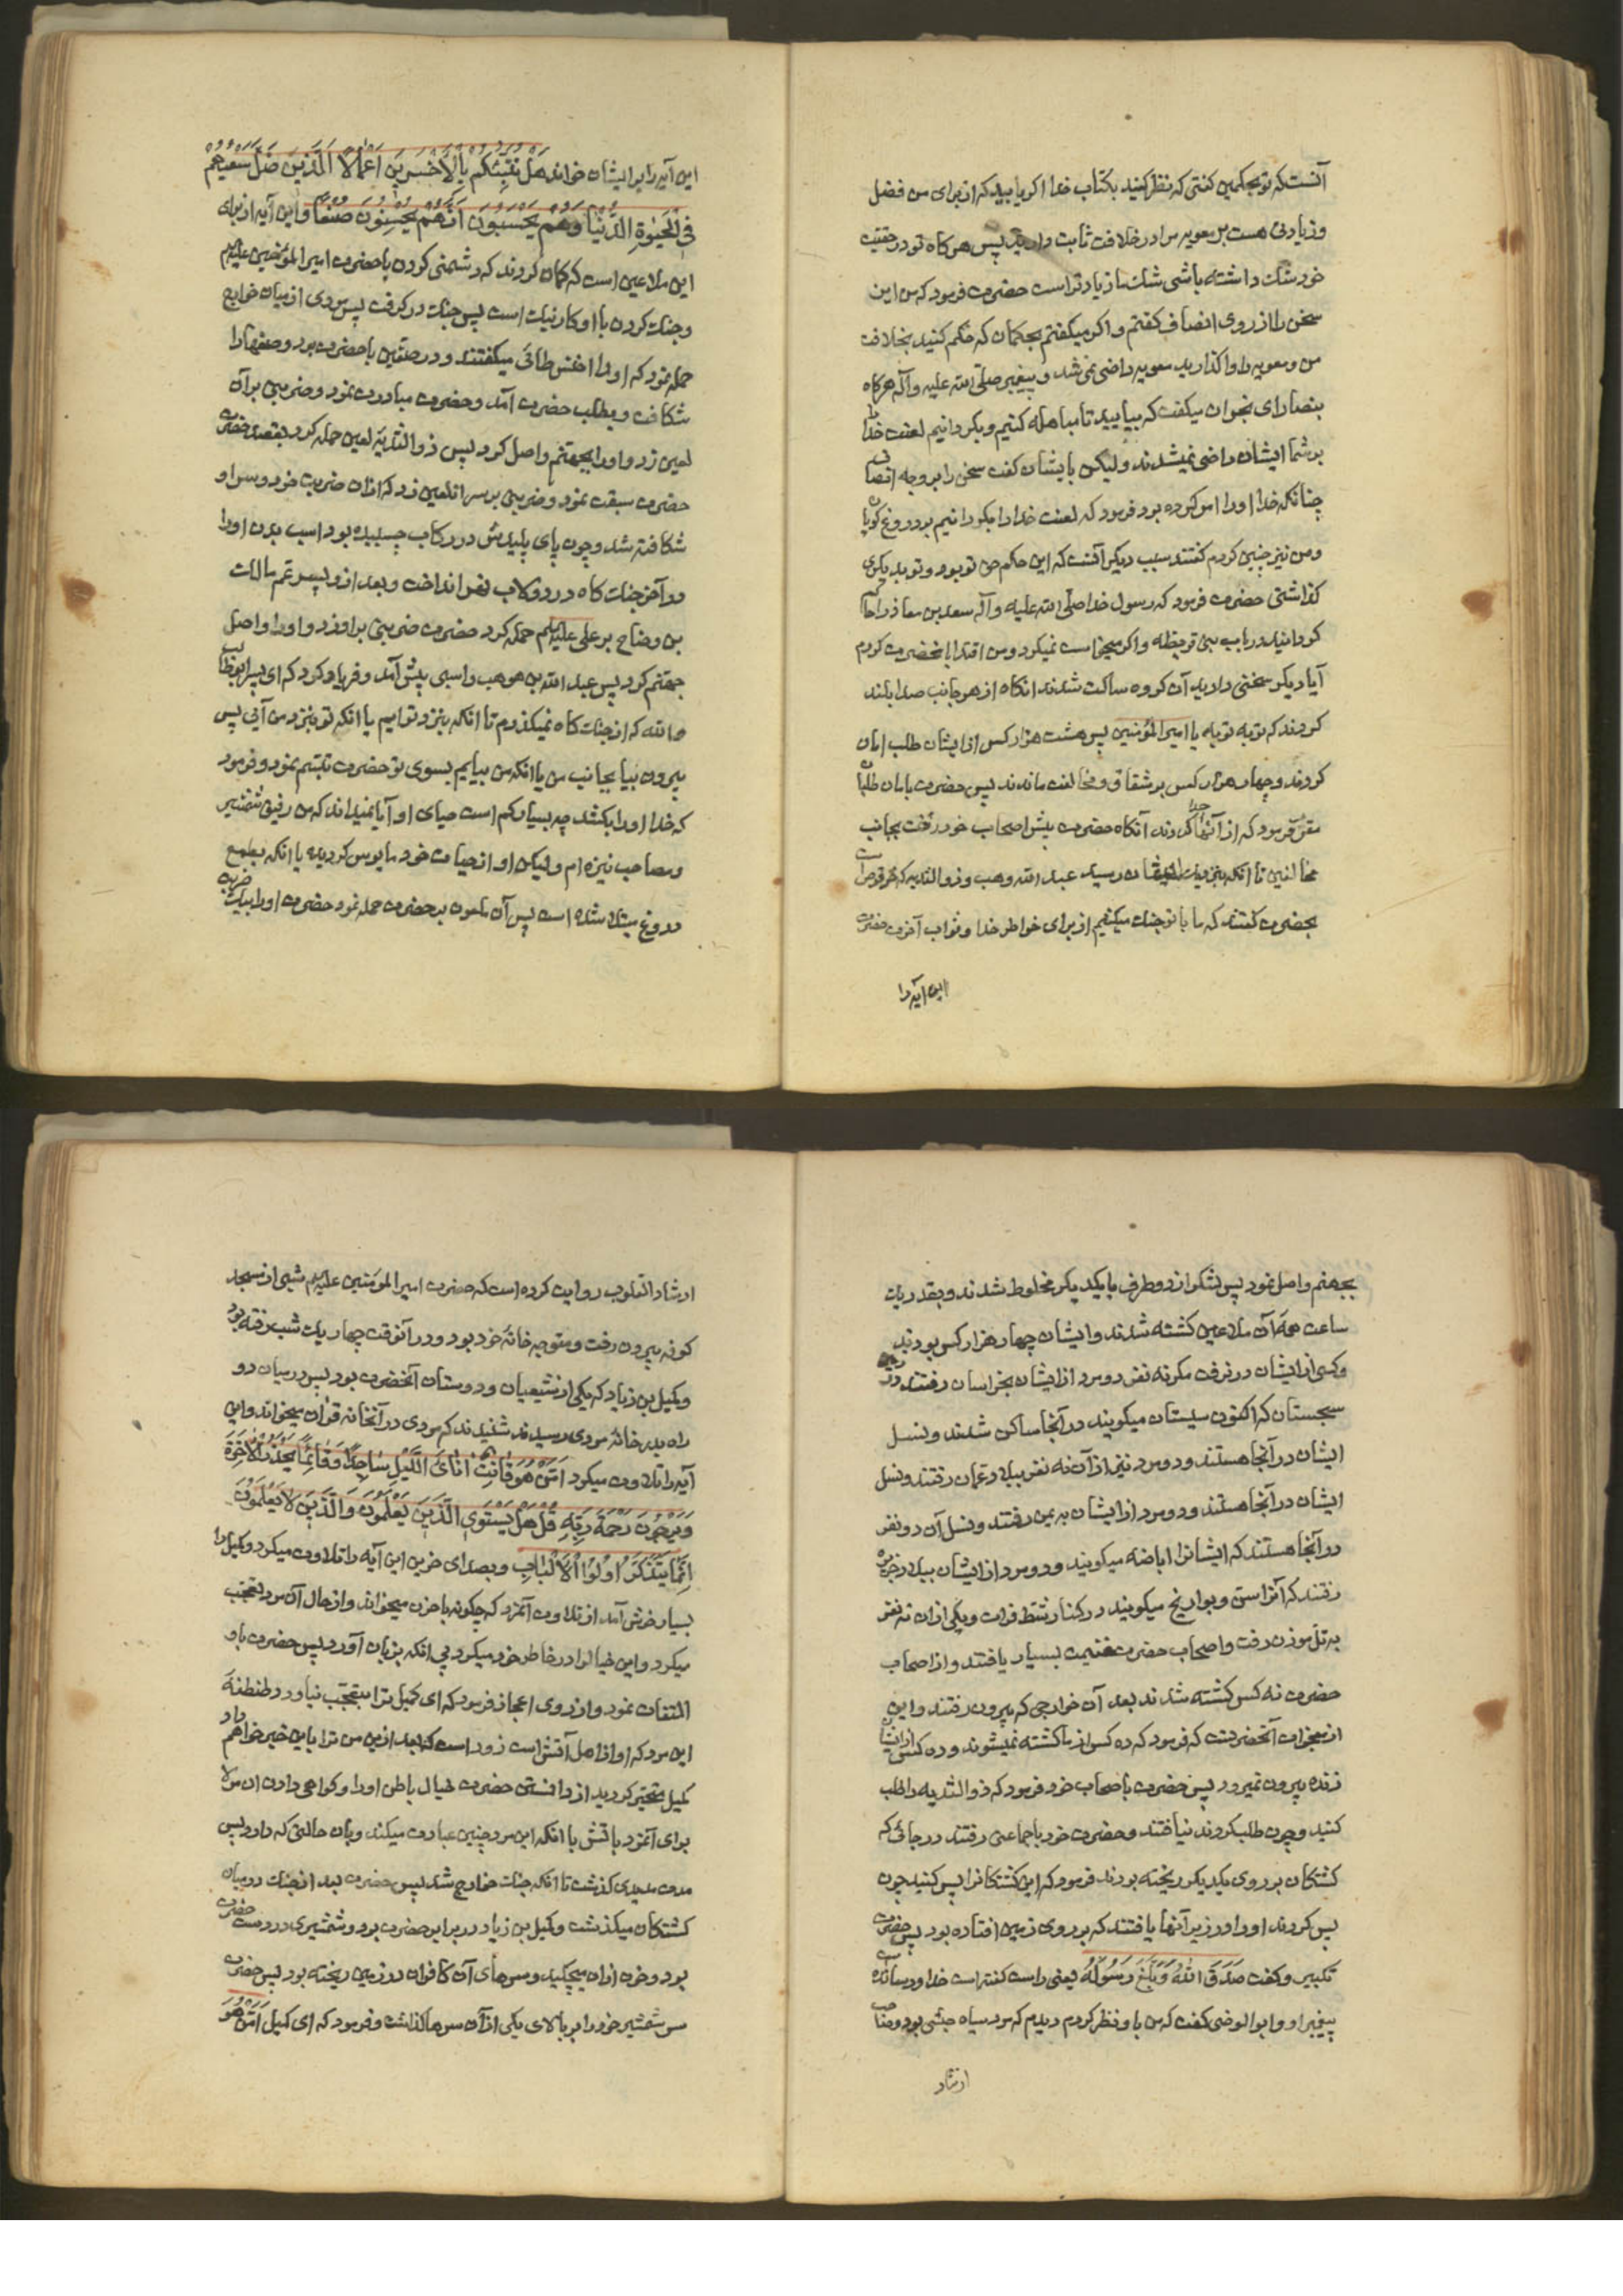 آنست که تو بحکمین گفتی که نظر کنید بکتاب خدا اکر یابید که از برای من فضل
و زیادتی هست بر معویه مرا در خلافت ثابت دارید پس هر کاه تو در حقیت
خود شک داشته باشی شک ما زیادتر است حضرت فرمود که من این
سخن را از روی انصاف کفتم و اکر میکفتم بحکمان که حکم کنید بخلافت
من و معویه را واکذارید معویه راضی نمی شد و پیغمبر صلی الله علیه و آله هر کاه
بنصارای نجران میکفت که بیایید تا مباهله کنیم و بکردانیم لعنت خدا را
بر شما ایشان راضی نمیشدند ولیکن بایشان کفت سخن را بر وجه انصاف
چنانکه خدا او را امر کرده بود فرمود که لعنت خدا را بکردانیم بر دروغ کویان
و من نیز چنین کردم کفتند سبب دیکر آنست که این حکم حق تو بود و تو بدیکری
کذاشتی حضرت فرمود که رسول خدا صلی الله علیه و آله سعد بن معاذ را حاکم
کردانید در باب بنی قریظه و اکر میخواست نمیکرد و من اقتدا بانحضرت کردم
آیا دیکر سخنی دارید آن کروه ساکت شدند انکاه از هر جانب صدا بلند
کردند که توبه توبه یا امیر المؤمنین پس هشت هزار کس از ایشان طلب امان
کردند و چهار هزار کس بر شقاق و مخالفت ماندند پس حضرت بامان طلبان
مقرر فرمود که از آنها جدا کردند آنکاه حضرت پیش اصحاب خود رفت بجانب
مخالفین تا آنکه بنزدیک ایشان رسید عبد الله وهب و ذو الثدیه که حرقوص است
بحضرت کفتند که ما با تو جنک میکنیم از برای خواطر خدا و ثواب آخرت حضرت
این آیه را
این آیه را بر ایشان خواند هَلْ نُنَبِّئُكُمْ بِالْاَخْسَرِينَ اَعْمَالًا اَلَّذِينَ ضَلَّ سَعْيُهُمْ
فِي الْحَيٰوةِ الدُّنْيَا وَهُمْ يَحْسَبُونَ اَنَّهُمْ يُحْسِنُونَ صُنْعًا و این آیه از برای
این ملاعین است که کمان کردند که دشمنی کردن با حضرت امیر المؤمنین علیه السلم
و جنک کردن با او کار نیک است پس جنک در کرفت پس مردی از میان خوارج
حمله نمود که او را اخنس طائی میکفتند و در صفین با حضرت بود و صفها را
شکافت و بطلب حضرت آمد و حضرت مبادرت نمود و ضربتی بر آن
لعین زد و او را بجهنم واصل کرد پس ذو الثدیه لعین حمله کرد بقصد حضرت
حضرت سبقت نمود و ضربتی بر سر انلعین زد که از ان ضربت خود و سر او
شکافته شد و چون پای پلیدش در رکاب چسبیده بود اسب بدن او را
در آخر جنک کاه در دولاب نهر انداخت و بعد از او پسر عم مالک
بن وضاح بر علی علیه السلم حمله کرد حضرت ضربتی بر او زد و او را واصل
جهنم کرد پس عبد الله بن وهب راسبی پیش آمد و فریاد کرد که ای پسر ابوطالب
و الله که از جنک کاه نمیکذرم تا انکه بنزد تو ایم یا انکه تو بنزد من آئی پس
بیرون بیا بجانب من یا انکه من بیایم بسوی تو حضرت تبسم نمود و فرمود
که خدا او را بکشد چه بسیار کم است حیای او آیا نمیداند که من رفیق شمشیر
و مصاحب نیزه ام ولیکن او از حیات خود مایوس کردیده یا انکه بطمع
دروغ مبتلا شده است پس آن ملعون بر حضرت حمله نمود حضرت او را بیک ضربت
بجهنم واصل نمود پس لشکر از دو طرف با یکدیکر مخلوط شدند و بقدر یک
ساعت همه آن ملاعین کشته شدند و ایشان چهار هزار کس بودند
و کسی از ایشان در نرفت مکر نه نفر دو مرد از ایشان بخراسان رفتند و در
سجستان که اکنون سیستان میکویند در آنجا ساکن شدند و نسل
ایشان در آنجا هستند و دو مرد نیز از آن نه نفر ببلاد عمان رفتند و نسل
ایشان در آنجا هستند و دو مرد از ایشان به یمن رفتند و نسل آن دو نفر
در آنجا هستند که ایشانرا اباضه میکویند و دو مرد از ایشان ببلاد جزیره
رفتند که آنرا سن و بوازیخ میکویند در کنار شط فرات و یکی از ان نه نفر
به تل موزن رفت و اصحاب حضرت غنیمت بسیار یافتند و از اصحاب
حضرت نه کس کشته شدند بعد آن خوارجی که بیرون رفتند و این
از معجزات آنحضرتست که فرمود که ده کس از ما کشته نمیشوند و ده کس از ایشان
زنده بیرون نمیرود پس حضرت باصحاب خود فرمود که ذو الثدیه را طلب
کنید و چون طلب کردند نیافتند و حضرت خود با جماعتی رفتند در جائی که
کشتکان بر روی یکدیکر ریخته بودند فرمود که این کشتکانرا پس کنید چون
پس کردند او را در زیر آنها یافتند که بر روی زمین افتاده بود پس حضرت
تکبیر و کفت صَدَقَ اللّٰهُ وَبَلَّغَ رَسُولُهُ یعنی راست کفته است خدا و رسانده است
پیغمبر او و ابو الوضی کفت که من باو نظر کردم دیدم که مرد سیاه حبشی بود و صاحب
ارشاد
ارشاد القلوب روایت کرده است که حضرت امیر المؤمنین علیه السلم شبی از مسجد
کوفه بیرون رفت و متوجه خانه خود بود و در آنوقت چهار یک شب رفته بود
و کمیل بن زیاد که یکی از شیعیان و دوستان آنحضرت بود پس در میان دو
راه بدر خانه مردی رسیدند شنیدند که مردی در آنخانه قران میخواند و این
آیه را تلاوت میکرد اَمَّنْ هُوَ قَانِتٌ اٰنَاءَ اللَّيْلِ سَاجِدًا وَقَائِمًا يَحْذَرُ الْاٰخِرَةَ
وَيَرْجُونَ رَحْمَةَ رَبِّهِ قُلْ هَلْ يَسْتَوِي الَّذِينَ يَعْلَمُونَ وَالَّذِينَ لَا يَعْلَمُونَ
اِنَّمَا يَتَذَكَّرُ اُولُوا الْاَلْبَابِ و بصدای حزین این آیه را تلاوت میکرد و کمیل را
بسیار خوش آمد از تلاوت آنمرد که چکونه با حزن میخواند و از حال آن مرد تعجب
میکرد و این خیالرا در خاطر خود میکرد بی انکه بزبان آورد پس حضرت باو
التفات نمود و از روی اعجاز فرمود که ای کمیل ترا بتعجب نیاورد طنطنه
این مرد که او از اهل آتش است زود است که بعد ازین من ترا باین خبر خواهم داد
کمیل متحیر کردید از دانستن حضرت خیال باطن او را و کواهی دادن ان مولا
برای آنمرد باتش با انکه این مرد چنین عبادت میکند و بان حالتی که دارد پس
مدت مدیدی کذشت تا انکه جنک خوارج شد پس حضرت بعد از جنک در میان
کشتکان میکذشت و کمیل بن زیاد در برابر حضرت بود و شمشیری در دست حضرت
بود و خون از ان میچکید و سرهای آن کافران در زمین ریخته بود پس حضرت
سر شمشیر خود را بر بالای یکی از آن سرها کذاشت و فرمود که ای کمیل اَمَّنْ هُوَ